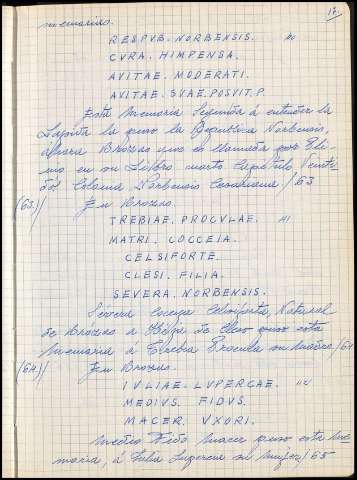 memorias.
17.
RESPVB. NORBENSIS.
CVRA. HIMPENSA.
AVITAE. MODERATI.
AVITAE. SVAE. POSVIT. P.
Esta Memoria Segunda á entender la
Lapida la puso la Republica Norbensis,
ahora Brozas una es llamada por Pli
nio en su Libro cuarto Capitulo Veinti
dos Colonia Norbensis Cesariana /63
(63)/ En Brozas.
TREBIAE. PROCVLAE.
MATRI. COCCEIA.
CELSIFORTE.
CLESI. FILIA.
SEVERA. NORBENSIS.
Severa Coceya Celsiforte, Natural
de Brozas e Hija de Cleso puso esta
memoria á Trebia Procula su madre /64
(64)/ En Brozas.
IVLIAE. LVPERCAE.
MEDIVS. FIDVS.
MACER. VXORI.
Medio Fido Macer puso esta me
moria, á Julia Luperca su mujer /65